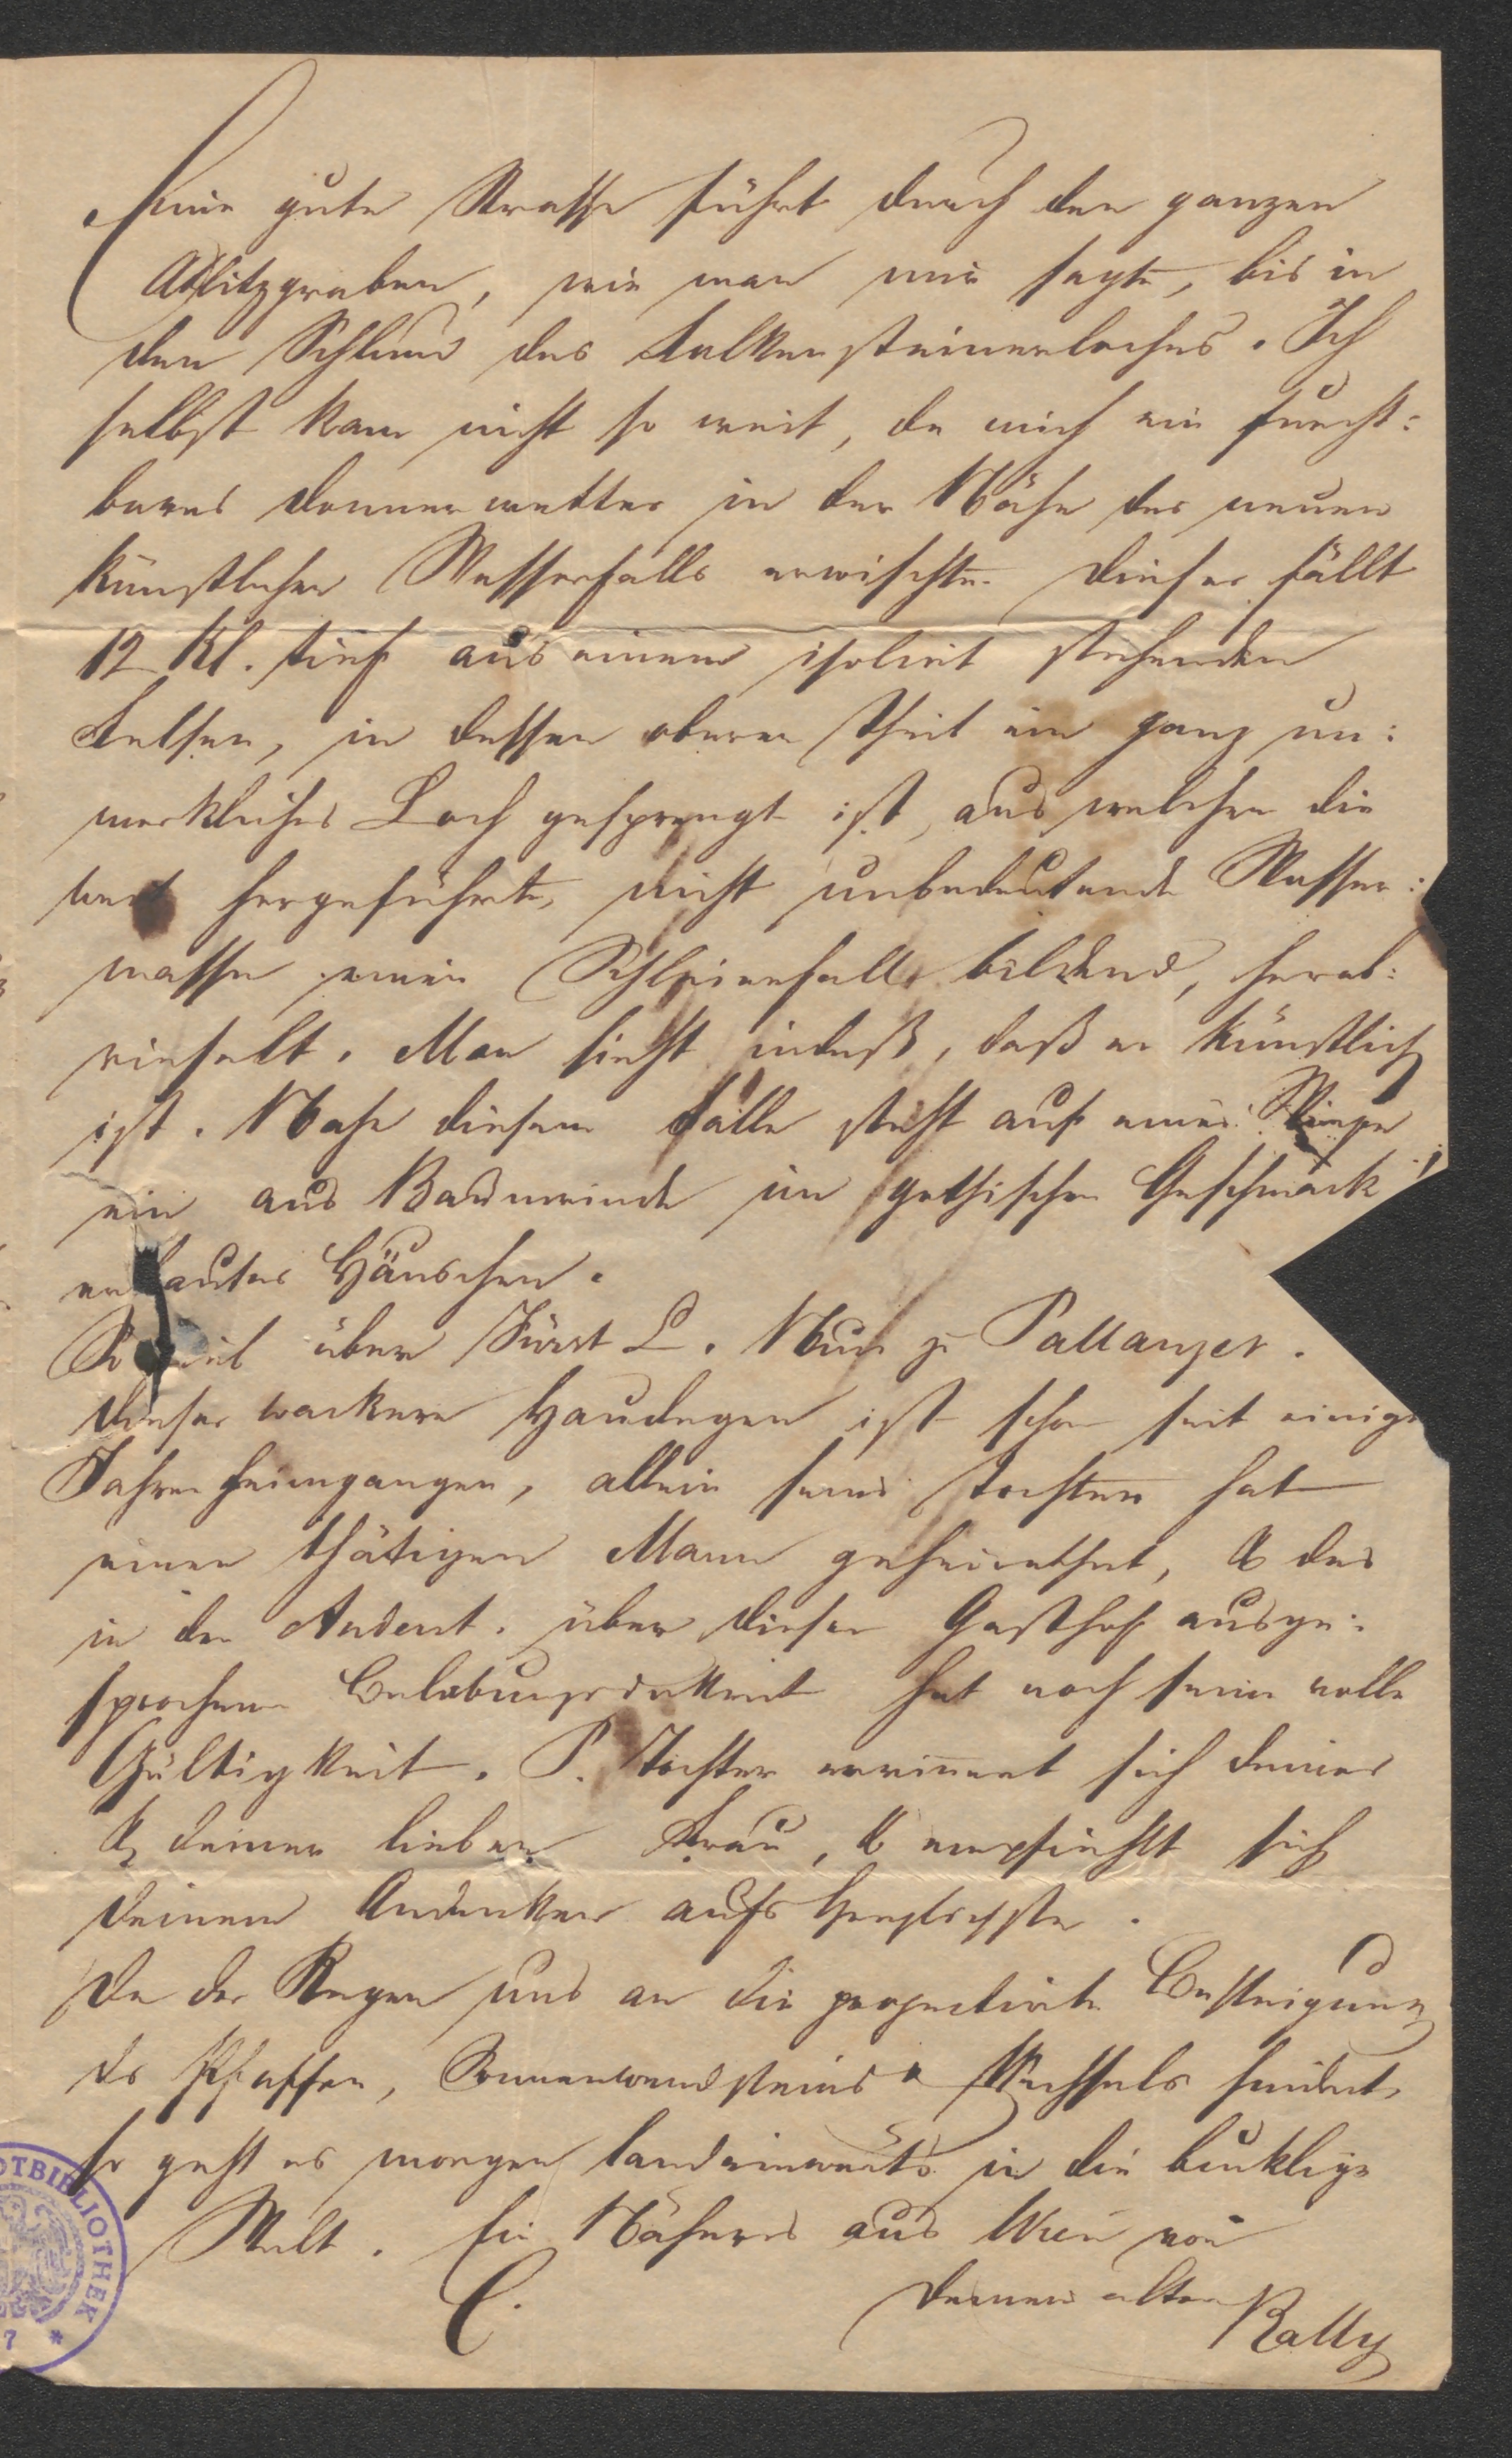 Eine gute Strasse führt durch den ganzen
Adlitzgraben, wie man mir sagte, bis in
den Schlund des Falkensteinerloches. Ich
selbst kam nicht so weit, da mich ein furcht:
bares Donnerwetter in der Nähe des neuen
künstlichen Wasserfalls erwischte. Dieser fällt
12 Kl. tief aus einem isolirt stehenden
Felsen, in dessen oberen Theil ein ganz un:
merkliches Loch gesprengt ist, aus welchen die
weit hergeführte, nicht unbedeutende Wasser:
masse einen Schleierfall bildend, herab:
rieselt. Man sieht indeß, daß er künstlich
ist. Nahe diesem Falle steht auf einer
ein aus Baumrinde im gothischen Geschmack
erbautes Häuschen.
Soviel über Fürst L. Nun zu Pallanzer.
Dieser wackere Haudegen ist schon seit einigen
Jahren heimgangen, allein seine Tochter hat
einen thätigen Mann geheirathet, & das
in den Andeut. über diesen Gasthof ausge:
sprochene Belobungsdekret hat noch seine volle
Gültigkeit. P. Tochter erinnert sich deiner
& deiner lieben Frau, & empfiehlt sich
deinem Andenken aufs Herzlichste.
Da der Regen uns an die projectirte Besteigung
des Pfaffen, Sonnenwendsteins & Wechsels hindert,
so geht es morgen landeinwärts in die bucklige
Welt. Ein Näheres aus Wien von
deinem alten
C. Rally
OTBIBLIOTHEK
7 *